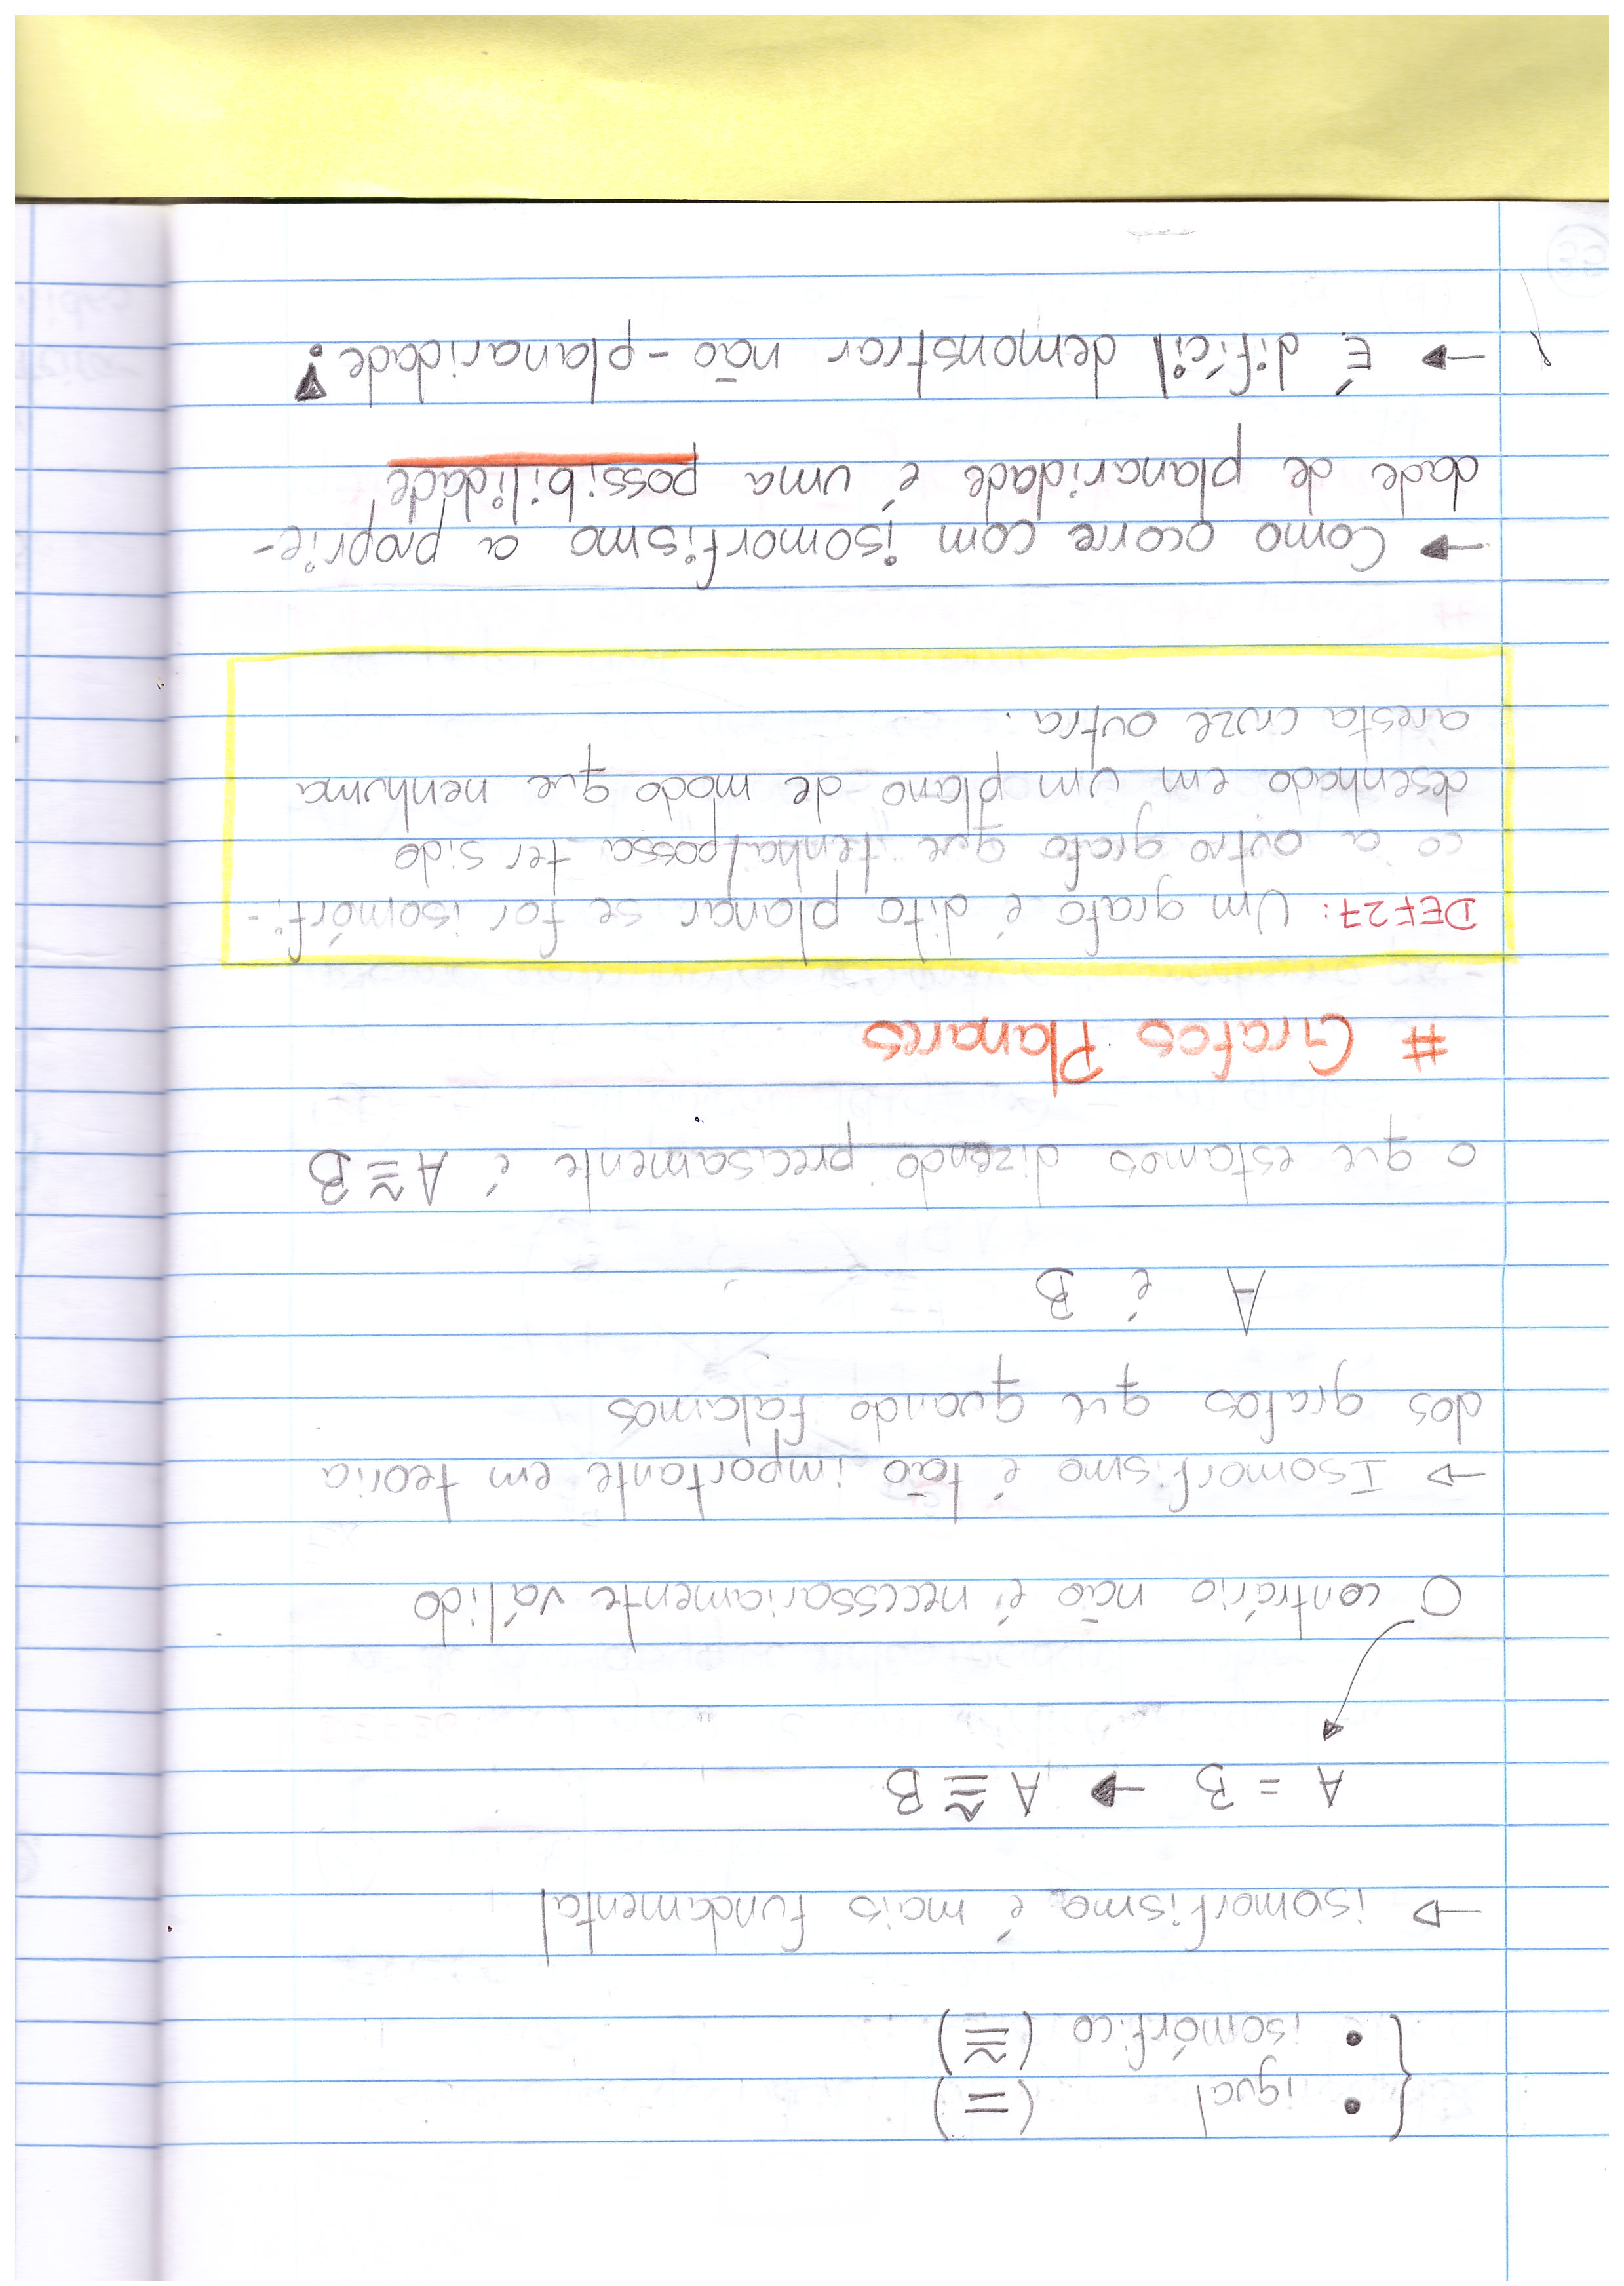 • igual (=)
• isomórfico (≅)
→ isomorfismo é mais fundamental
A = B → A ≅ B
O contrário não é necessariamente válido
→ Isomorfismo é tão importante em teoria
dos grafos que quando falamos
A é B
o que estamos dizendo precisamente é A ≅ B
# Grafos Planares
DEF27: Um grafo é dito planar se for isomórfi-
co a outro grafo que tenha/possa ter sido
desenhado em um plano de modo que nenhuma
aresta cruze outra.
→ Como ocorre com isomorfismo a proprie-
dade de planaridade é uma possibilidade
→ É difícil demonstrar não-planaridade!